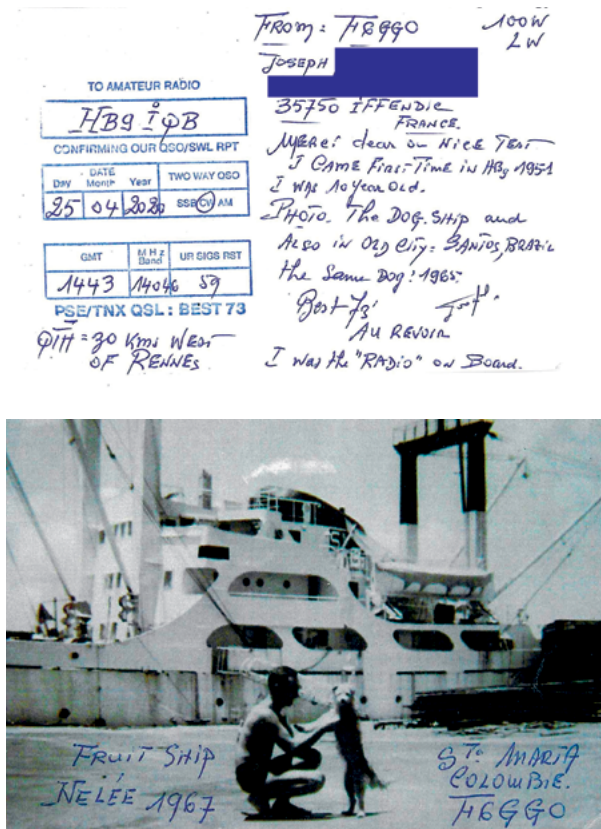 FROM: F6GGO
100W
LW
JOSEPH
35750 IFFENDIC
FRANCE.
TO AMATEUR RADIO
HB9IØB
CONFIRMING OUR QSO/SWL RPT
Day DATE Month Year TWO WAY QSO
25 04 2020 SSB CW AM
GMT MHz Band UR SIGS RST
1443 14046 59
PSE/TNX QSL: BEST 73
QTH = 30 Kms WEST
OF RENNES
MERCI dear on NICE TEST
I CAME FIRST TIME in HB9 1951
I WAS 10 year OLD.
PHOTO. The DOG. SHIP and
ALSO in OLD CITY = SANTOS, BRAZIL
the SAME DOG! 1965.
Best 73'
AU REVOIR
I was the "RADIO" on Board.
FRUIT SHIP
NELÉE 1967
STO MARTA
COLOMBIE.
F6GGO